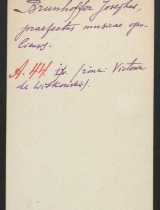 Brunhoffer Josephus,
praefectus musicae opo-
liensis.
A. 44 (rina: Victoria
de Witkowskis).